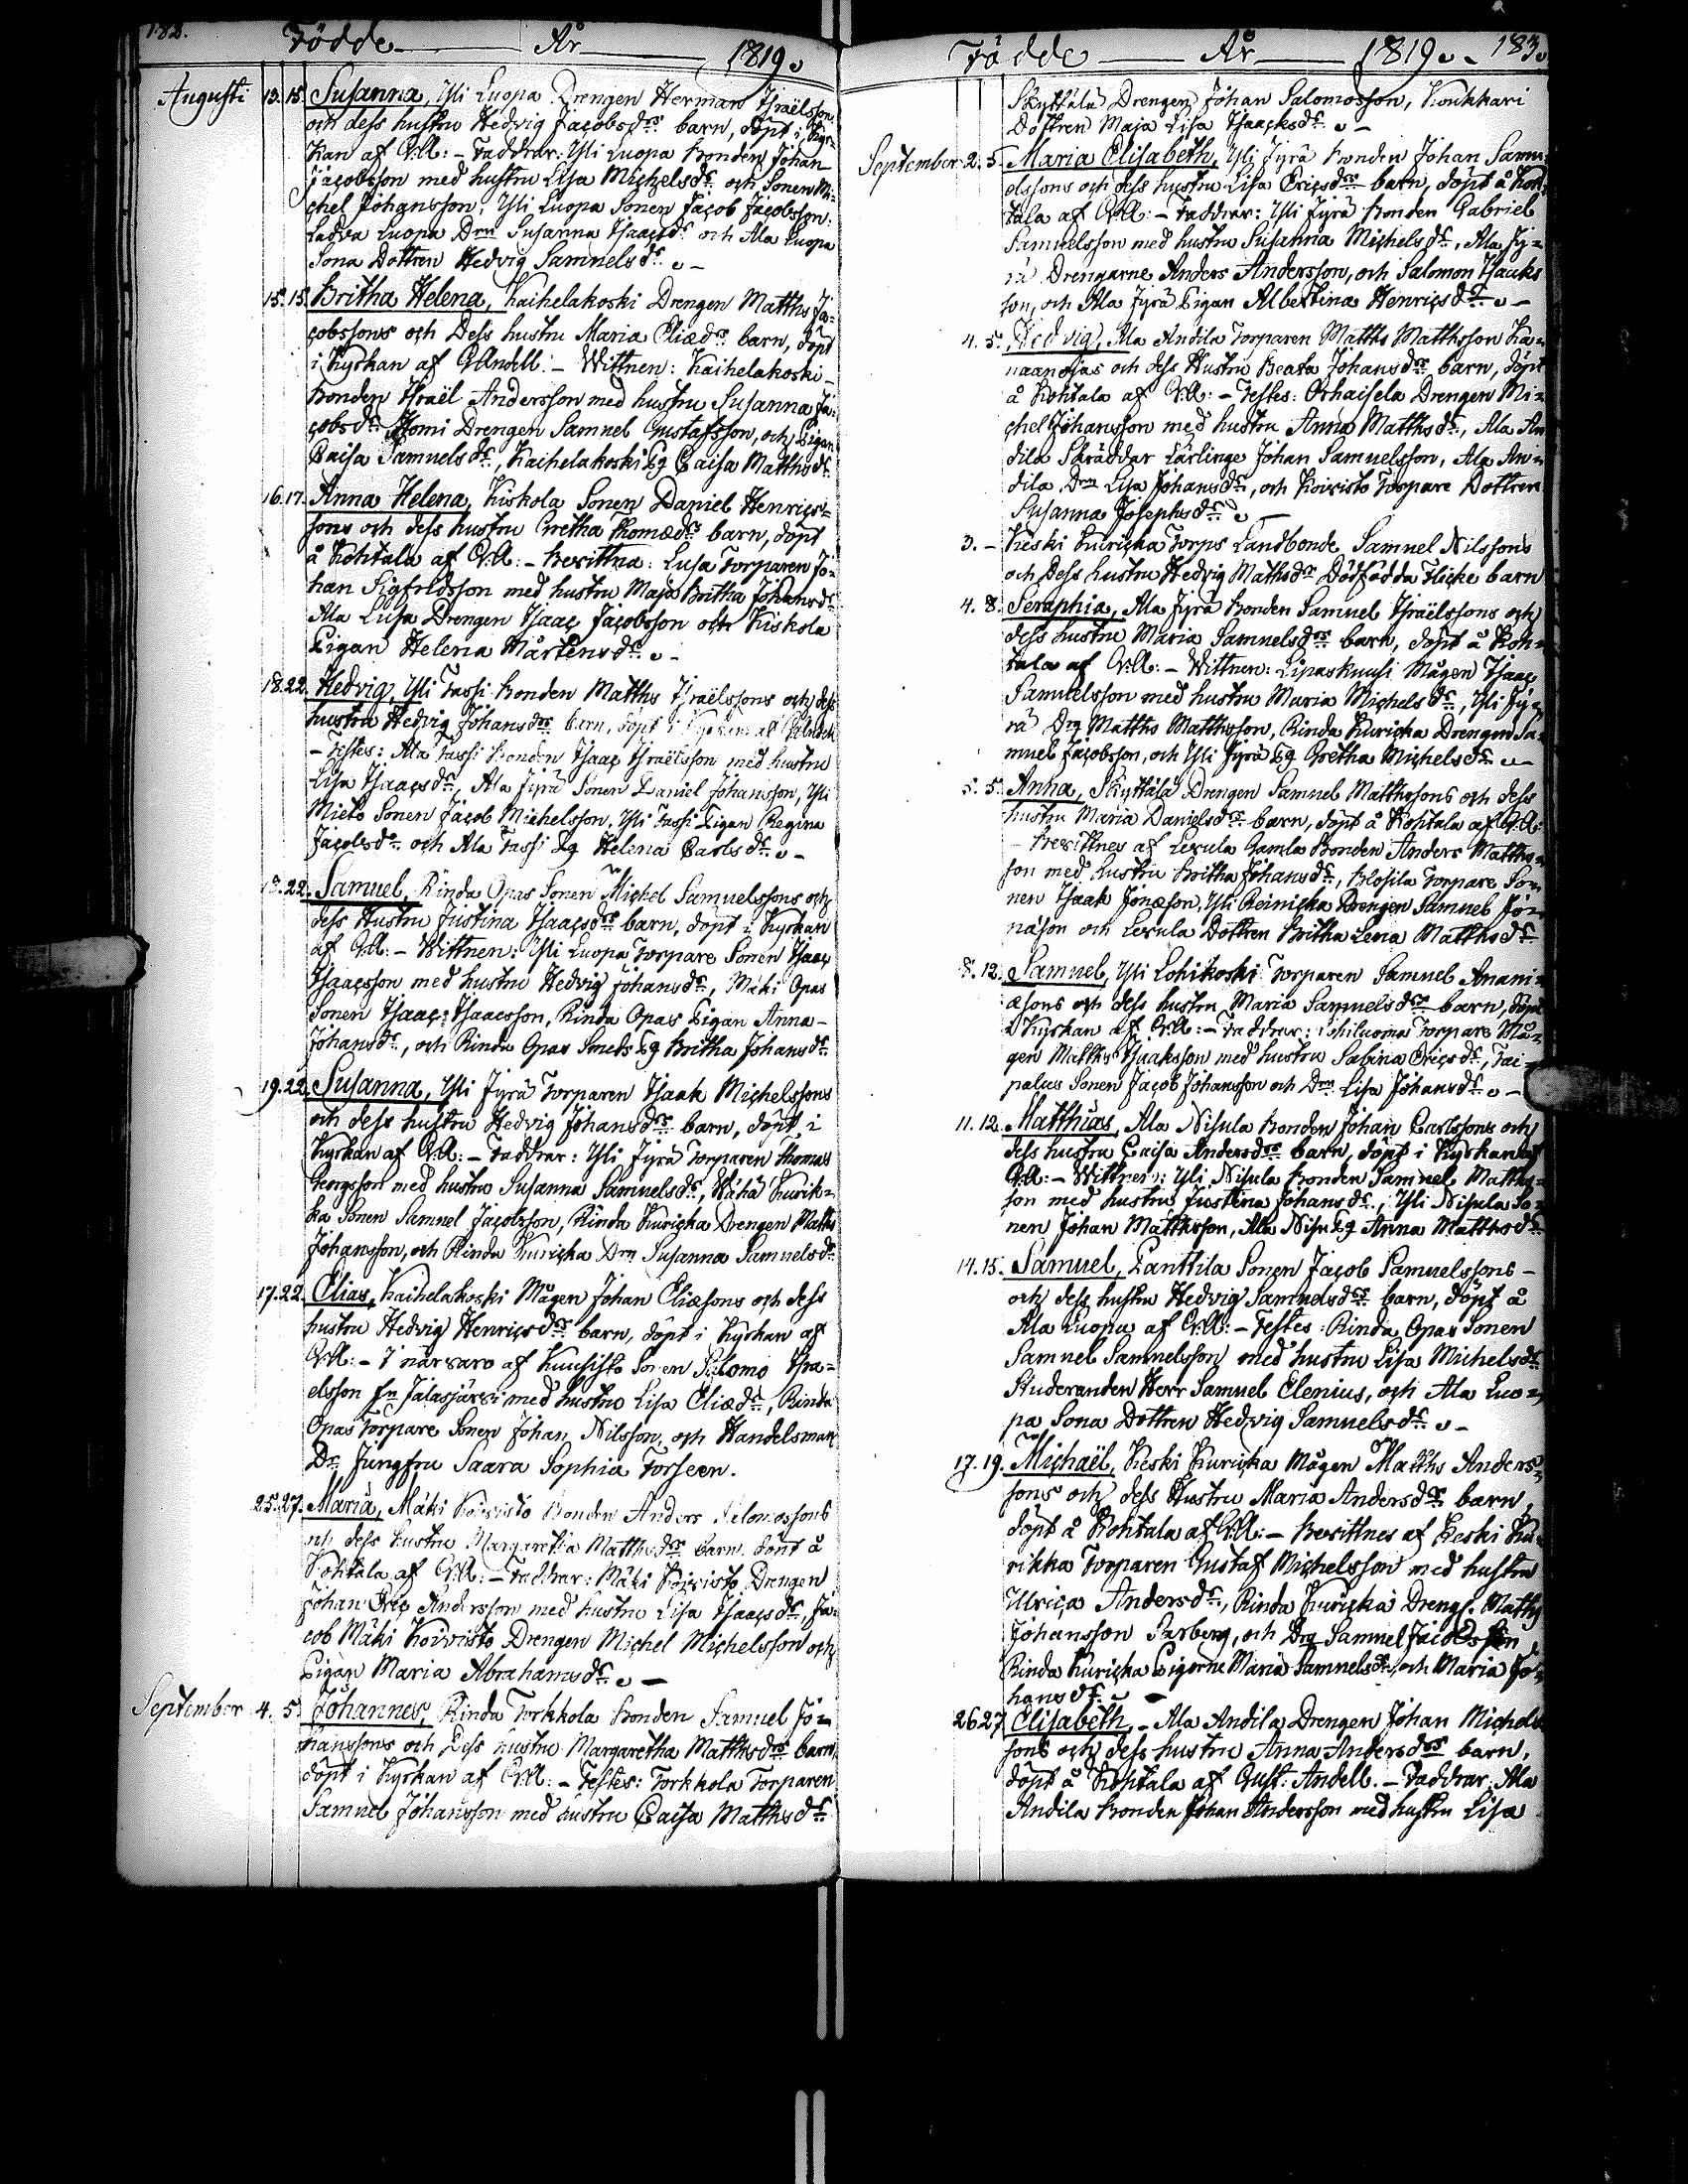 182.
Födde År 1819.
Augusti 13. 15. Susanna, Yli Luopa Drengen Herman Israëlsson
och dess hustru Hedvig Jacobsdrs barn, döpt i Kyr-
kan af G:A: - Faddrar: Yli Luopa Bonden Johan
Jacobsson med hustru Lisa Michelsdr och Sonen Mi-
chel Johansson, Yli Luopa Sonen Jacob Jacobsson.
Ladva Luopa Drn Susanna Isaacsdr och Ala Luopa
Sona Dottren Hedvig Samuelsdr. -
15. 15. Britha Helena, Kaihelakoski Drengen Matths Ja-
cobssons och Dess hustru Maria Eliædrs barn, döpt
i Kyrkan af G:Andell: - Wittnen: Kaihelakoski
Bonden Israël Andersson med hustru Susanna Ja-
cobsdr Homi Drengen Samuel Gustafsson, och Pigan
Caisa Samuelsdr, Kaihelakoski Pg Caisa Matthsdr
16. 17. Anna Helena, Kiskola Sonen Daniel Henrics-
sons och dess hustru Gretha Thomædrs barn, döpt
å Kohtala af G:A: - Bevittna: Lusa Torparen Jo-
han Sigfridsson med hustru Maja Britha Johansdr
Ala Lusa Drengen Isaac Jacobsson och Kiskola
Pigan Helena Mårtensdr. -
18. 22. Hedvig, Yli Jassi Bonden Matths Israëlssons och dess
hustru Hedvig Johansdrs barn, döpt i Kyrkan af G:Andell
- Testes: Ala Jassi Bonden Isaac Israëlsson med hustru
Lisa Isaacsdr, Ala Jyrä Sonen Daniel Johansson, Yli
Mieto Sonen Jacob Michelsson, Yli Jassi Pigan Regina
Jacobsdr och Ala Jassi Pg Helena Carlsdr. -
18. 22. Samuel, Rinda Opas Sonen Michel Samuelssons och
dess Hustru Justina Isaacsdrs barn, döpt i Kyrkan
af G:A: - Wittnen: Yli Luopa Torpare Sonen Isaac
Isaacsson med hustru Hedvig Johansdr, Mäki Opas
Sonen Isaac Isaacsson, Rinda Opas Pigan Anna
Johansdr, och Rinda Opas Smeds Pg Britha Johansdr
19. 22. Susanna, Yli Jyrä Torparen Isaak Michelssons
och dess hustru Hedvig Johansdrs barn, döpt i
Kyrkan af G:A: - Faddrar: Yli Jyrä Torparen Thomas
Georgsson med hustru Susanna Samuelsdr, Wähä Kurik-
ka Sonen Samuel Jacobsson, Rinda Kuricka Drengen Matths
Johansson, och Rinda Kuricka Drn Susanna Samuelsdr
17. 22. Elias, Kaihelakoski Mågen Johan Eliæsons och dess
hustru Hedvig Henricsdrs barn, döpt i Kyrkan af
G:A: - I närvaro af Kuusisto Sonen Salomo Isra-
elsson fn Jalasjärvi med hustru Lisa Eliædr, Rinda
Opas Torpare Sonen Johan Nilsson, och Handelsman
Dr Jungfru Saara Sophia Forseen.
25. 27. Maria, Mäki Koivisto Bonden Anders Salomossons
och dess hustru Margaretha Matthsdrs barn, döpt å
Kohtala af G:A: - Faddrar: Mäki Koivisto Drengen
Johan Eric Andersson med hustru Lisa Isaacsdr, Ja-
cob Mäki Koivisto Drengen Michel Michelsson och
Pigan Maria Abrahamsdr. -
September 4. 5. Johannes, Rinda Torkkola Bonden Samuel Jo-
hanssons och Dess hustru Margaretha Matthsdrs barn
döpt i Kyrkan af G:A: - Testes: Torkkola Torparen
Samuel Johansson med hustru Caisa Matthsdr
Födde År 1819. 183.
Skyttälä Drengen Johan Salomosson, Koukkari
Dottren Maja Lisa Isaacksdr. -
September 2. 5. Maria Elisabeth, Yli Jyrä Bonden Johan Samu-
elssons och dess hustru Lisa Ericsdrs barn, döpt å Koh-
tala af G:A: - Faddrar: Yli Jyrä Bonden Gabriel
Samuelsson med hustru Susanna Michelsdr, Ala Jy-
rä Drengarne Anders Andersson, och Salomon Isaaks
son, och Ala Jyrä Pigan Albertina Henricsdr. -
4. 5. Hedvig, Ala Andila Torparen Matths Matthsson Ka-
naanojas och dess Hustru Beata Johansdrs barn, döpt
å Kohtala af G:A: - Testes: Orhaisela Drengen Mi-
chel Johansson med hustru Anna Matthsdr, Ala An
dila Skräddar Lärlinge Johan Samuelsson, Ala An-
dila Drn Lisa Johansdr, och Koivisto Torpare Dottren
Susanna Josephsdr. -
3. - Keski Kuricka Torps Landbonde Samuel Nilssons
och Dess hustru Hedvig Mathsdrs Dödfödda Flicke barn
4. 8. Seraphia, Ala Jyrä Bonden Samuel Israëlssons och
dess hustru Maria Samuelsdrs barn, döpt å Koh-
tala af G:A: - Wittnen: Lipaskuusi Mågen Isaac
Samuelsson med hustru Maria Michelsdr, Yli Jy-
rä Drg Matths Matthsson, Rinda Kuricka Drengen Sa-
muel Jacobsson, och Yli Jyrä Pg Gretha Michelsdr. -
5. 5. Anna, Skyttälä Drengen Samuel Matthssons och dess
hustru Maria Danielsdrs barn, döpt å Kohtala af G:A:
- Bevittnes af Lexula Gamla Bonden Anders Matths-
son med hustru Britha Johansdr, Blosila Torpare So-
nen Isaak Jonæson, Yli Reinicka Drengen Samuel Jo-
nason och Lexula Dottren Britha Lena Matthsdr
8. 12. Samuel, Yli Lohikoski Torparen Samuel Anani-
æsons och dess hustru Maria Samuelsdrs barn, döpt
i Kyrkan af G:A: - Faddrar: Torpare Må-
gen Matths Isaaksson med hustru Sabina Ericsdr, Tai-
palus Sonen Jacob Johansson och Drn Lisa Johansdr. -
11. 12. Matthias, Ala Nisula Bonden Johan Carlssons och
dess hustru Caisa Andersdrs barn, döpt i Kyrkan af
G:A: - Wittnen: Yli Nisula Bonden Samuel Matths-
son med hustru Justina Johansdr, Yli Nisula So-
nen Johan Matthsson, Ala Nisu Pg Anna Matthsdr
14. 15. Samuel, Panttila Sonen Jacob Samuelssons
och dess hustru Hedvig Samuelsdrs barn, döpt å
Ala Luopa af G:A: - Testes: Rinda Opas Sonen
Samuel Samuelsson med hustru Lisa Michelsdr
Studeranden Herr Samuel Elenius, och Ala Luo-
pa Sona Dottren Hedvig Samuelsdr. -
17. 19. Michaël, Keski Kuricka Mågen Matths Anders-
sons och dess Hustru Maria Andersdrs barn,
döpt å Kohtala af G:A: - Bevittnes af Keski Ku-
rikka Torparen Gustaf Michelsson med hustru
Ulrica Andersdr, Rinda Kuricka Dreng. Matths
Johansson Sarberg, och Drg Samuel Jacobsson
Rinda Kuricka Pigorne Maria Samuelsdr, och Maria Jo-
hansdr. -
26. 27. Elisabeth, - Ala Andila Drengen Johan Michels
sons och dess hustru Anna Andersdrs barn,
döpt å Kohtala af Gust: Andell. - Faddrar: Ala
Andila Bonden Johan Andersson med hustru Lisa